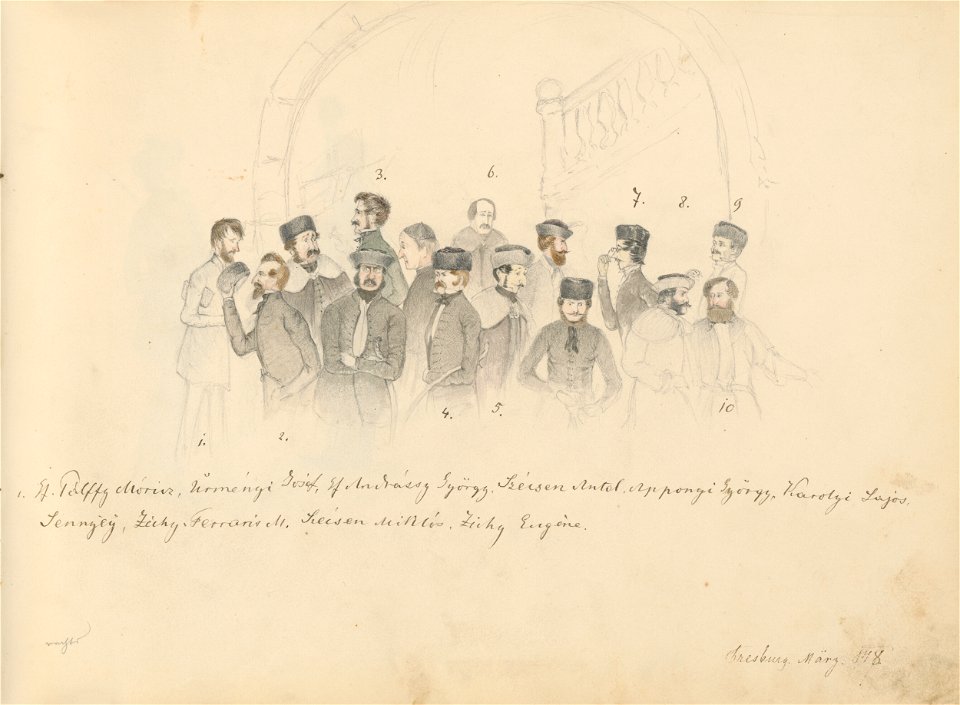 3. 6. 7. 8. 9
1. 2. 4. 5. 10
1. Gf. Pálffy Móricz, Ürményi József, Gf Andrássy György, Szécsen Antal, Apponyi György, Karolyi Lajos,
Sennyey, Zichy-Ferraris M. Szécsen Miklós, Zichy Eugène.
rechts
Presburg. März. 848